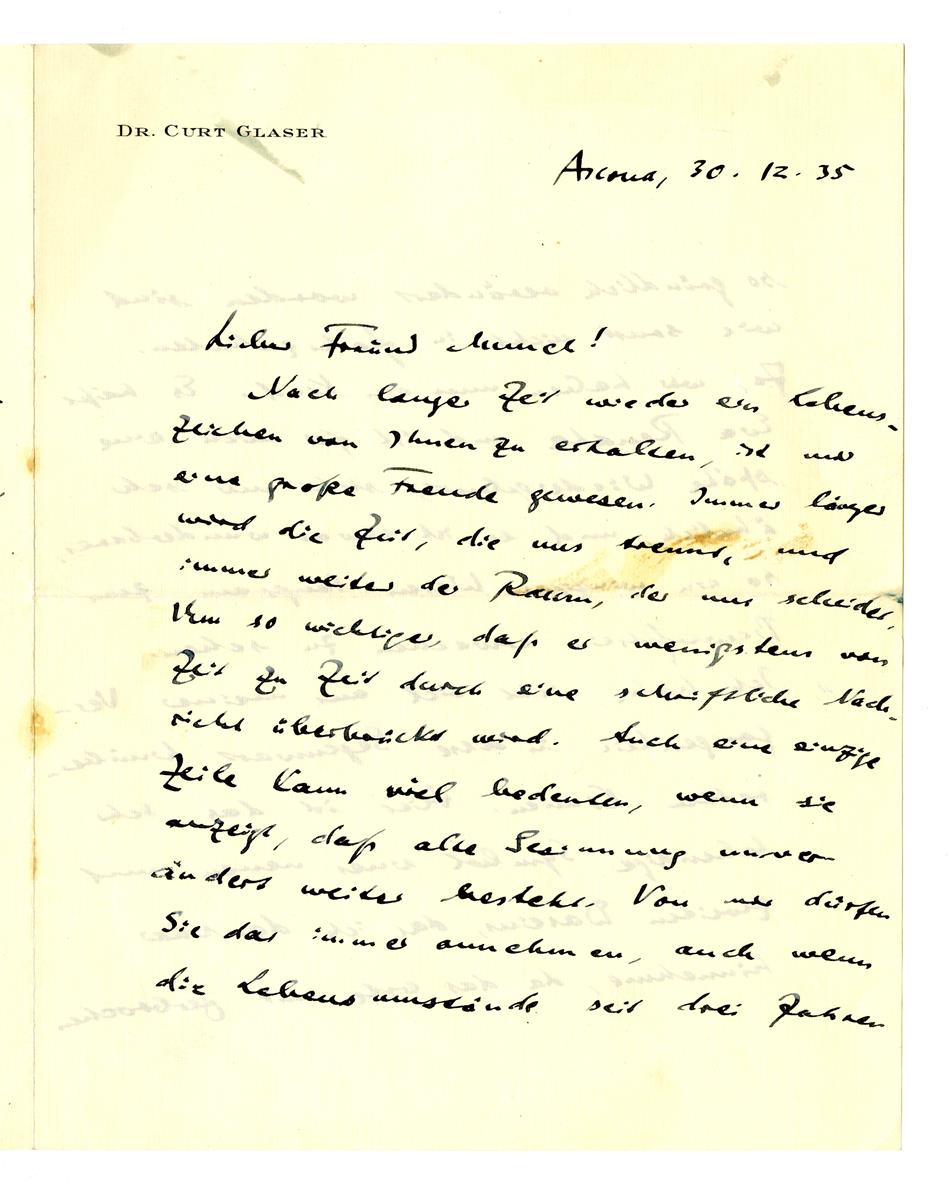 DR. CURT GLASER
Ascona, 30. 12. 35
Lieber Freund Munch!
Nach langer Zeit wieder ein Lebens-
zeichen von Ihnen zu erhalten, ist mir
eine große Freude gewesen. Immer länger
wird die Zeit, die uns trennt, und
immer weiter der Raum, der uns scheidet,
Um so wichtiger, daß er wenigstens von
Zeit zu Zeit durch eine schriftliche Nach-
richt überbrückt wird. Auch eine einzige
Zeile kann viel bedeuten, wenn sie
anzeigt, daß alte Gesinnung unver-
ändert weiter besteht. Von mir dürfen
Sie das immer annehmen, auch wenn
die Lebensumstände seit drei Jahren